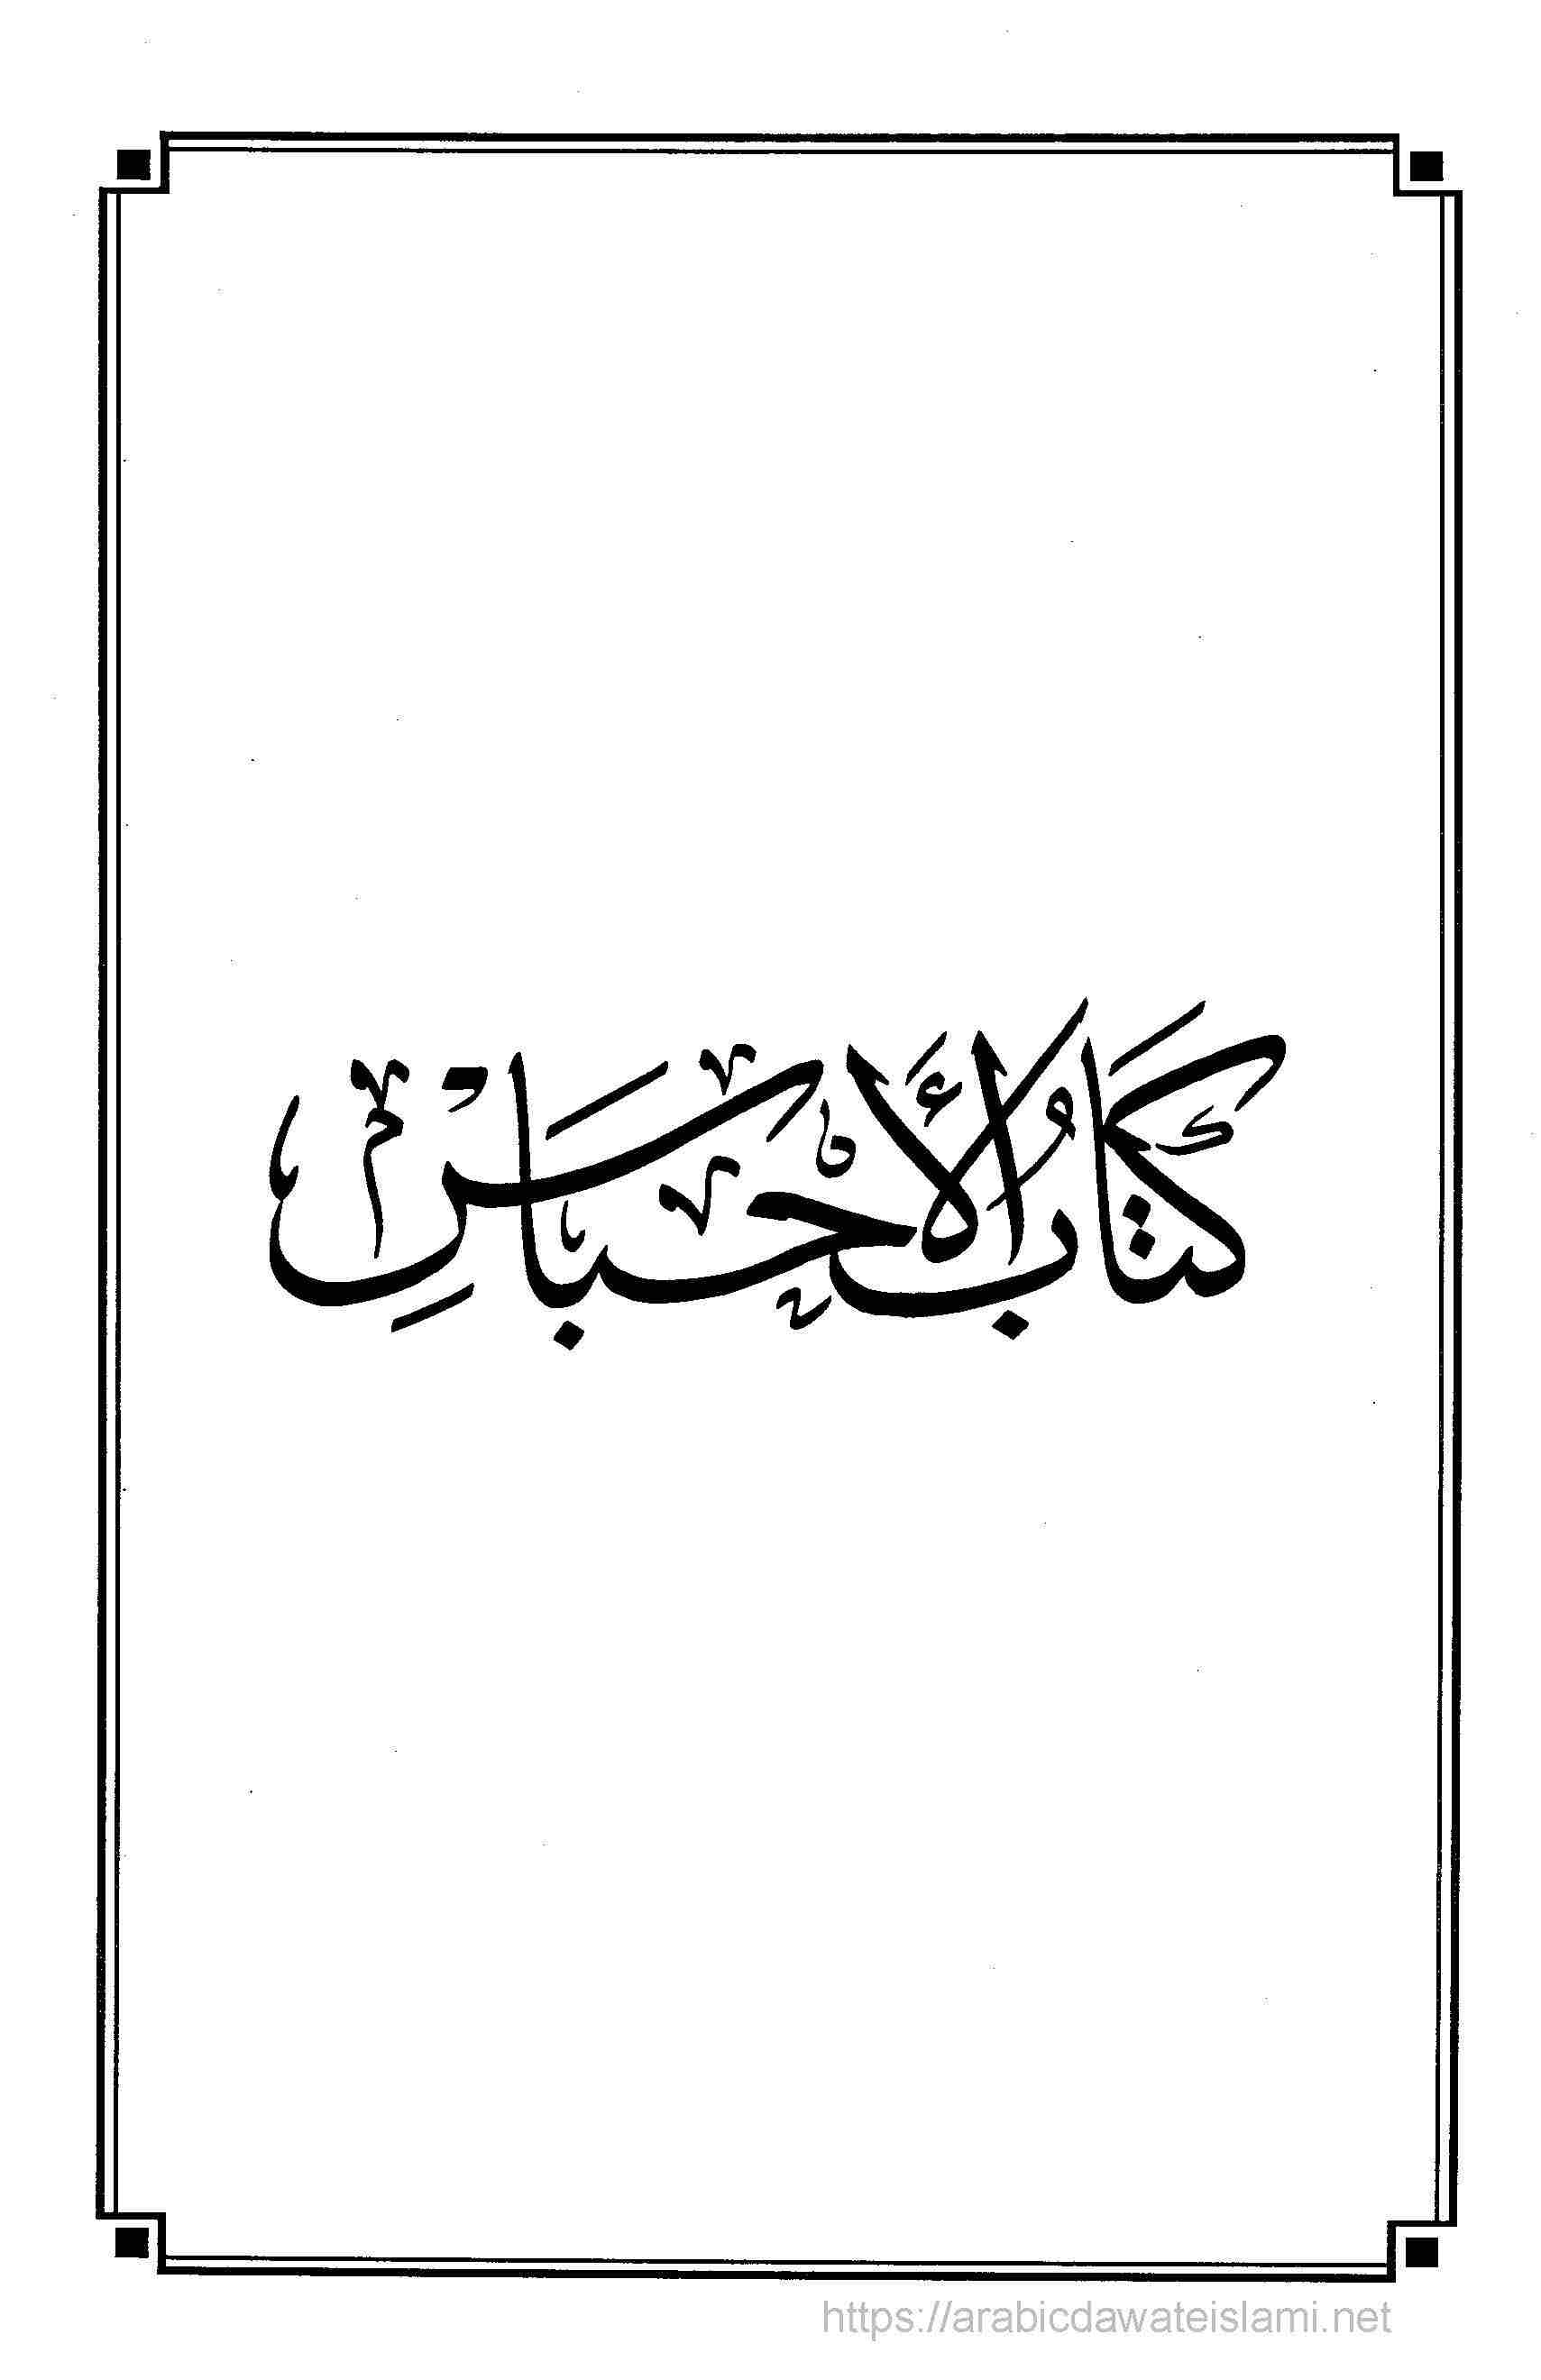 كتَابُ الأَحْبَاسِ
https://arabicdawateislami.net